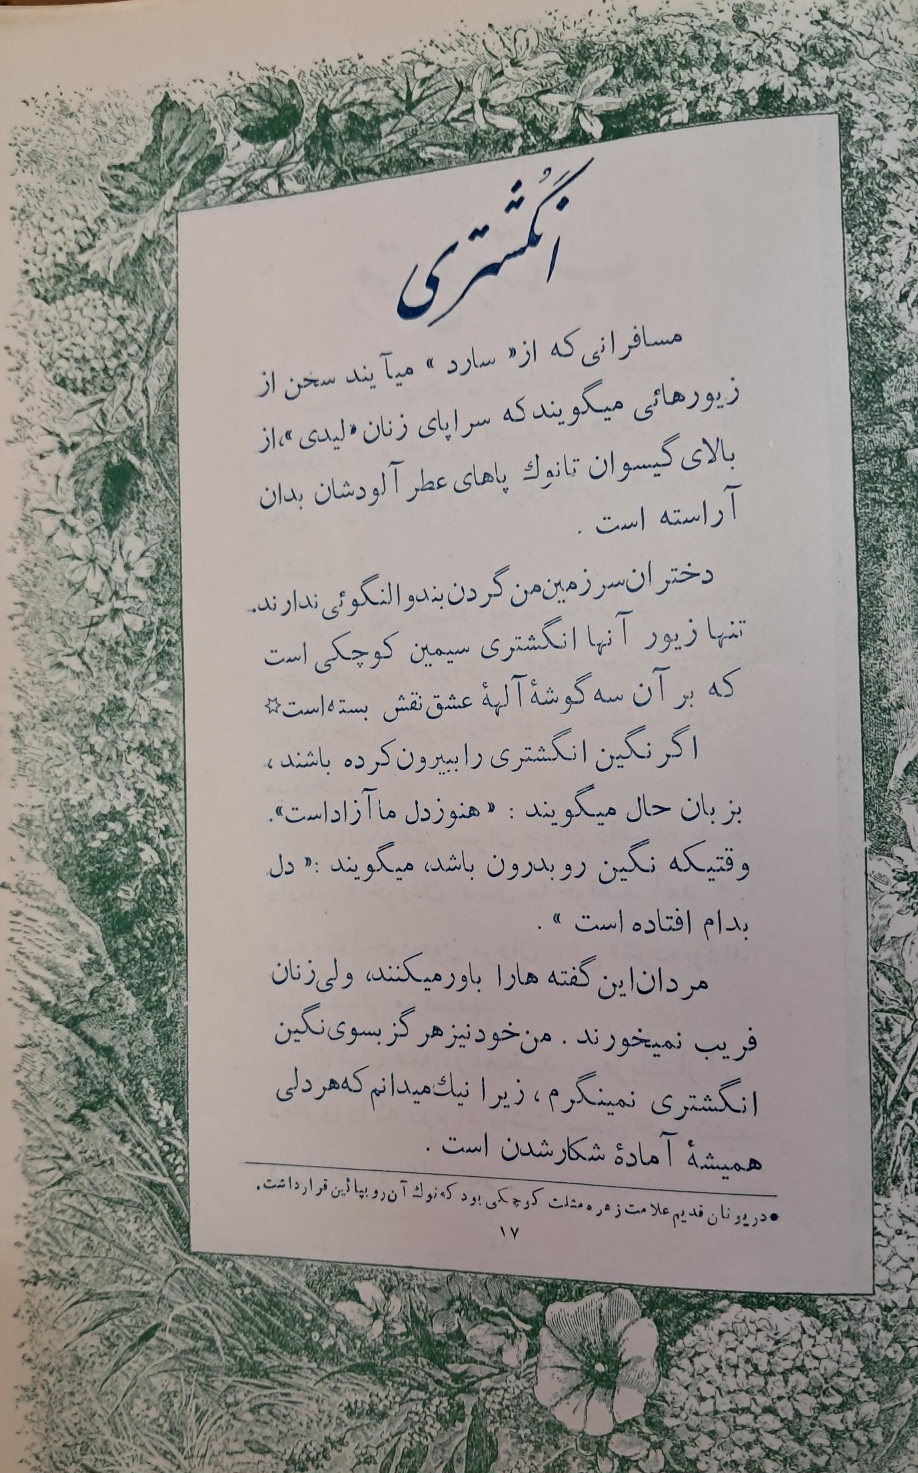 انگشتری
مسافرانی که از « سارد » میآیند سخن از
زیورهائی میگویند که سراپای زنان «لیدی»، از
بالای گیسوان تا نوك پاهای عطر آلودشان بدان
آراسته است .
دختران سرزمین من گردن بند و النگوئی ندارند.
تنها زیور آنها انگشتری سیمین کوچکی است
که بر آن سه گوشهٔ آلههٔ عشق نقش بسته است☆
اگر نگین انگشتری را ببیرون کرده باشند،
بزبان حال میگویند : « هنوز دل ما آزاد است».
وقتیکه نگین رو بدرون باشد، میگویند :« دل
بدام افتاده است » .
مردان این گفته ها را باور میکنند، ولی زنان
فریب نمیخورند . من خود نیز هرگز بسوی نگین
انگشتری نمینگرم ، زیرا نیك میدانم که هر دلی
همیشهٔ آمادهٔ شکار شدن است .
● در یونان قدیم علامت زهره مثلث کوچکی بود که نوك آن رو بپائین قرار داشت.
۱۷